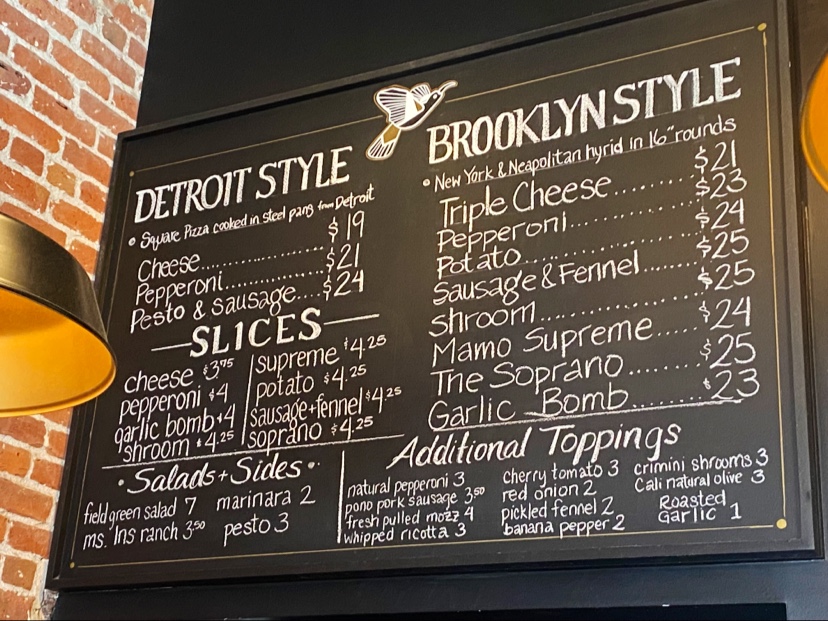 DETROIT STYLE
• Square Pizza cooked in steel pans from Detroit
Cheese.................... $19
Pepperoni............... $21
Pesto & Sausage.... $24
SLICES
cheese $3.75
pepperoni $4
garlic bomb $4
shroom $4.25
supreme $4.25
potato $4.25
sausage+fennel $4.25
soprano $4.25
• Salads + Sides •
field green salad 7
ms. Ins ranch 3.50
marinara 2
pesto 3
BROOKLYN STYLE
• New York & Neapolitan hyrid in 16" rounds
Triple Cheese......... $21
Pepperoni............... $23
Potato.................... $24
Sausage & Fennel....... $25
Shroom.................... $25
Mamo Supreme..... $24
The Soprano......... $25
Garlic Bomb........ $23
Additional Toppings
natural pepperoni 3
pono pork sausage 3.50
fresh pulled mozz 4
whipped ricotta 3
cherry tomato 3
red onion 2
pickled fennel 2
banana pepper 2
crimini shrooms 3
Cali natural olive 3
Roasted
Garlic 1